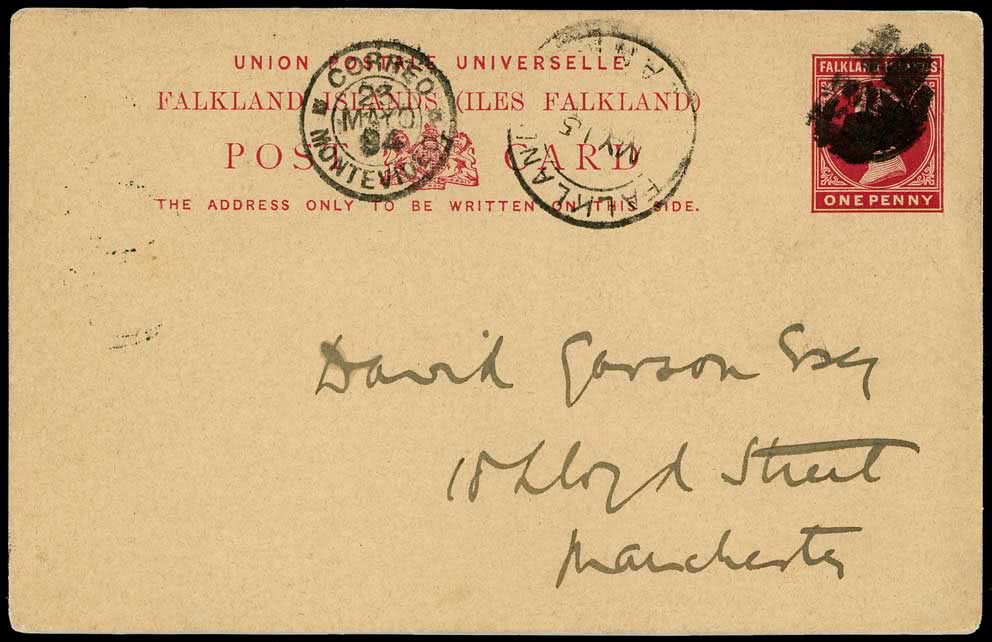 UNION POSTALE UNIVERSELLE
FALKLAND ISLANDS (ILES FALKLAND)
POST CARD
THE ADDRESS ONLY TO BE WRITTEN ON THIS SIDE.
CORREO
23
MAYO
94
MONTEVIDEO
FALKLAND
MY 15
FALKLAND ISLANDS
ONE PENNY
David Garson Esq
18 Lloyd Street
Manchester